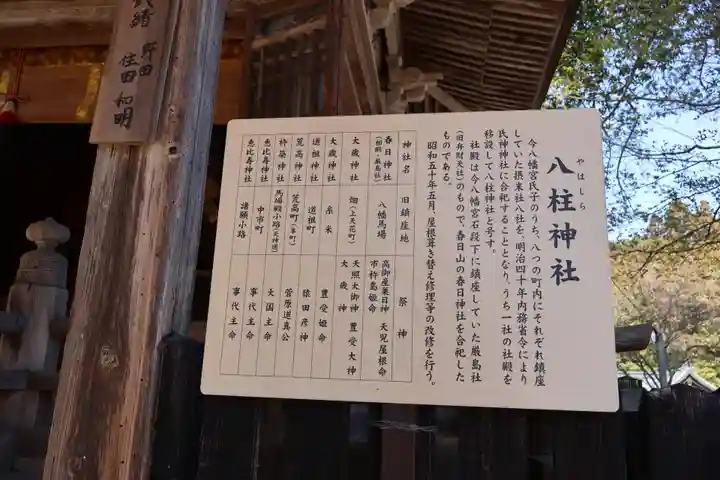 八柱神社
やはしら
今八幡宮氏子のうち、八つの町内にそれぞれ鎮座
していた摂末社八社を、明治四十年内務省令により
氏神神社に合祀することとなり、うち一社の社殿を
移設して八柱神社と号す。
社殿は今八幡宮石段下に鎮座していた厳島社
(旧弁財天社)のもので、春日山の春日神社を合祀した
ものである。
昭和五十年五月、屋根葺き替え修理等の改修を行う。
神社名 旧鎮座地 祭神
春日神社 (相殿・厳島社) 八幡馬場 高御産巣日神 天児屋根命 市杵島姫命
大歳神社 畑(上天花町) 天照大御神 豊受大神 大歳神
大歳神社 糸米 豊受姫命
道祖神社 道祖町 猿田彦神
荒高神社 荒高町(幸町) 菅原道真公
杵築神社 馬場殿小路(天神通) 大国主命
恵比寿神社 中市町 事代主命
恵比寿神社 諸願小路 事代主命
野田
住田和明